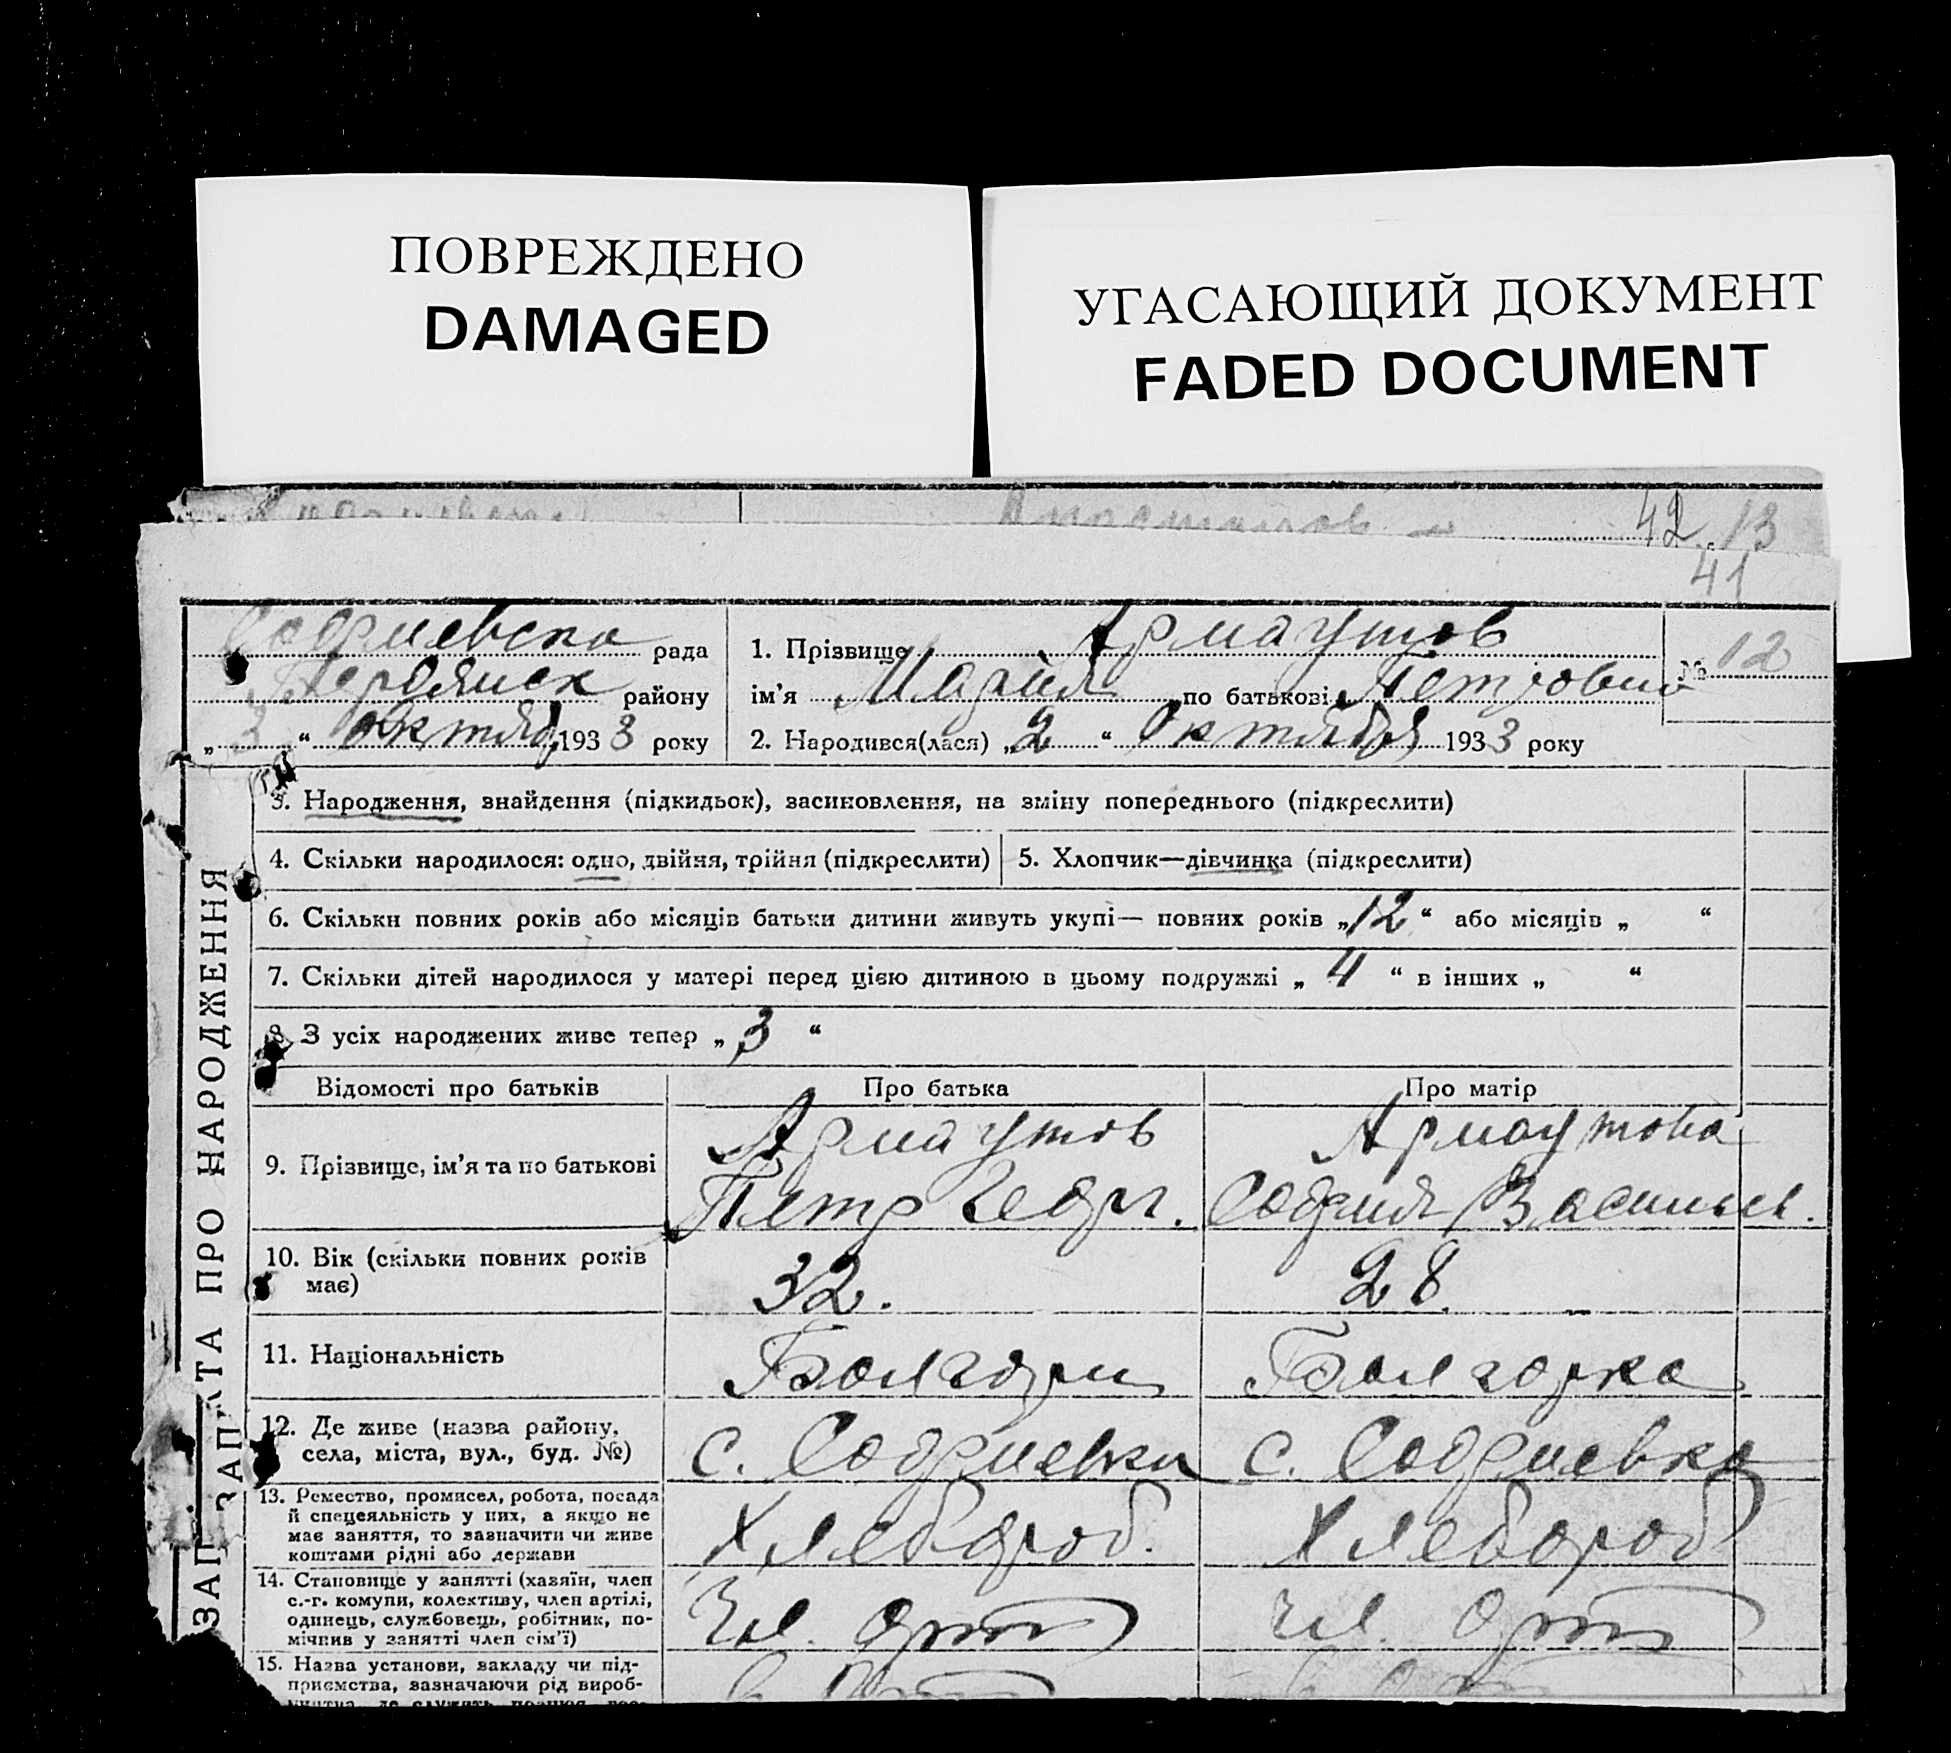 ПОВРЕЖДЕНО
DAMAGED
УГАСАЮЩИЙ ДОКУМЕНТ
FADED DOCUMENT
42 13
41
Софиевска рада
району
„3“ октяб 1933 року
1. Прізвище Армаутов
ім’я Мария по батькові Петровна
2. Народився(лася) „2“ Октября 1933 року
№ 12
ЗАПИС ПРО НАРОДЖЕННЯ
3. Народження, знайдення (підкидьок), засиновлення, на зміну попереднього (підкреслити)
4. Скільки народилося: одно, двійня, трійня (підкреслити)
5. Хлопчик—дівчинка (підкреслити)
6. Скільки повних років або місяців батьки дитини живуть укупі— повних років „12“ або місяців „ “
7. Скільки дітей народилося у матері перед цією дитиною в цьому подружжі „4“ в інших „ “
8. З усіх народжених живе тепер „3“
Відомості про батьків
Про батька
Про матір
9. Прізвище, ім’я та по батькові
Армаутов
Петр Георг.
Армаутова
София Васильев.
10. Вік (скільки повних років
має)
32.
28.
11. Національність
Болгарин
Болгарка
12. Де живе (назва району,
села, міста, вул., буд. №)
с. Софиевка
с. Софиевка
13. Ремество, промисел, робота, посада
й спецеяльність у них, а якщо не
має заняття, то зазначити чи живе
коштами рідні або держави
Хлебороб.
Хлебороб
14. Становище у занятті (хазяїн, член
с.-г. комуни, колективу, член артілі,
одинець, службовець, робітник, по-
мічнив у занятті член сім’ї)
Чл. арт
Чл. арт
15. Назва установи, закладу чи під-
приємства, зазначаючи рід вироб-